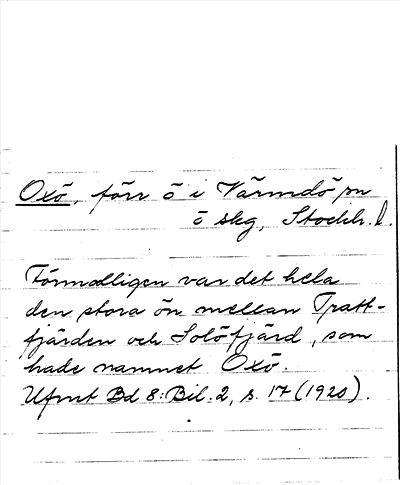 Oxö, förr ö i Värmdö sn
ö skg, Stockh. l.
Förmodligen var det hela
den stora ön mellan Tratt-
fjärden och Solöfjärd, som
hade namnet Oxö.
Ufmt Bd 8: Bil. 2, s. 17 (1920).